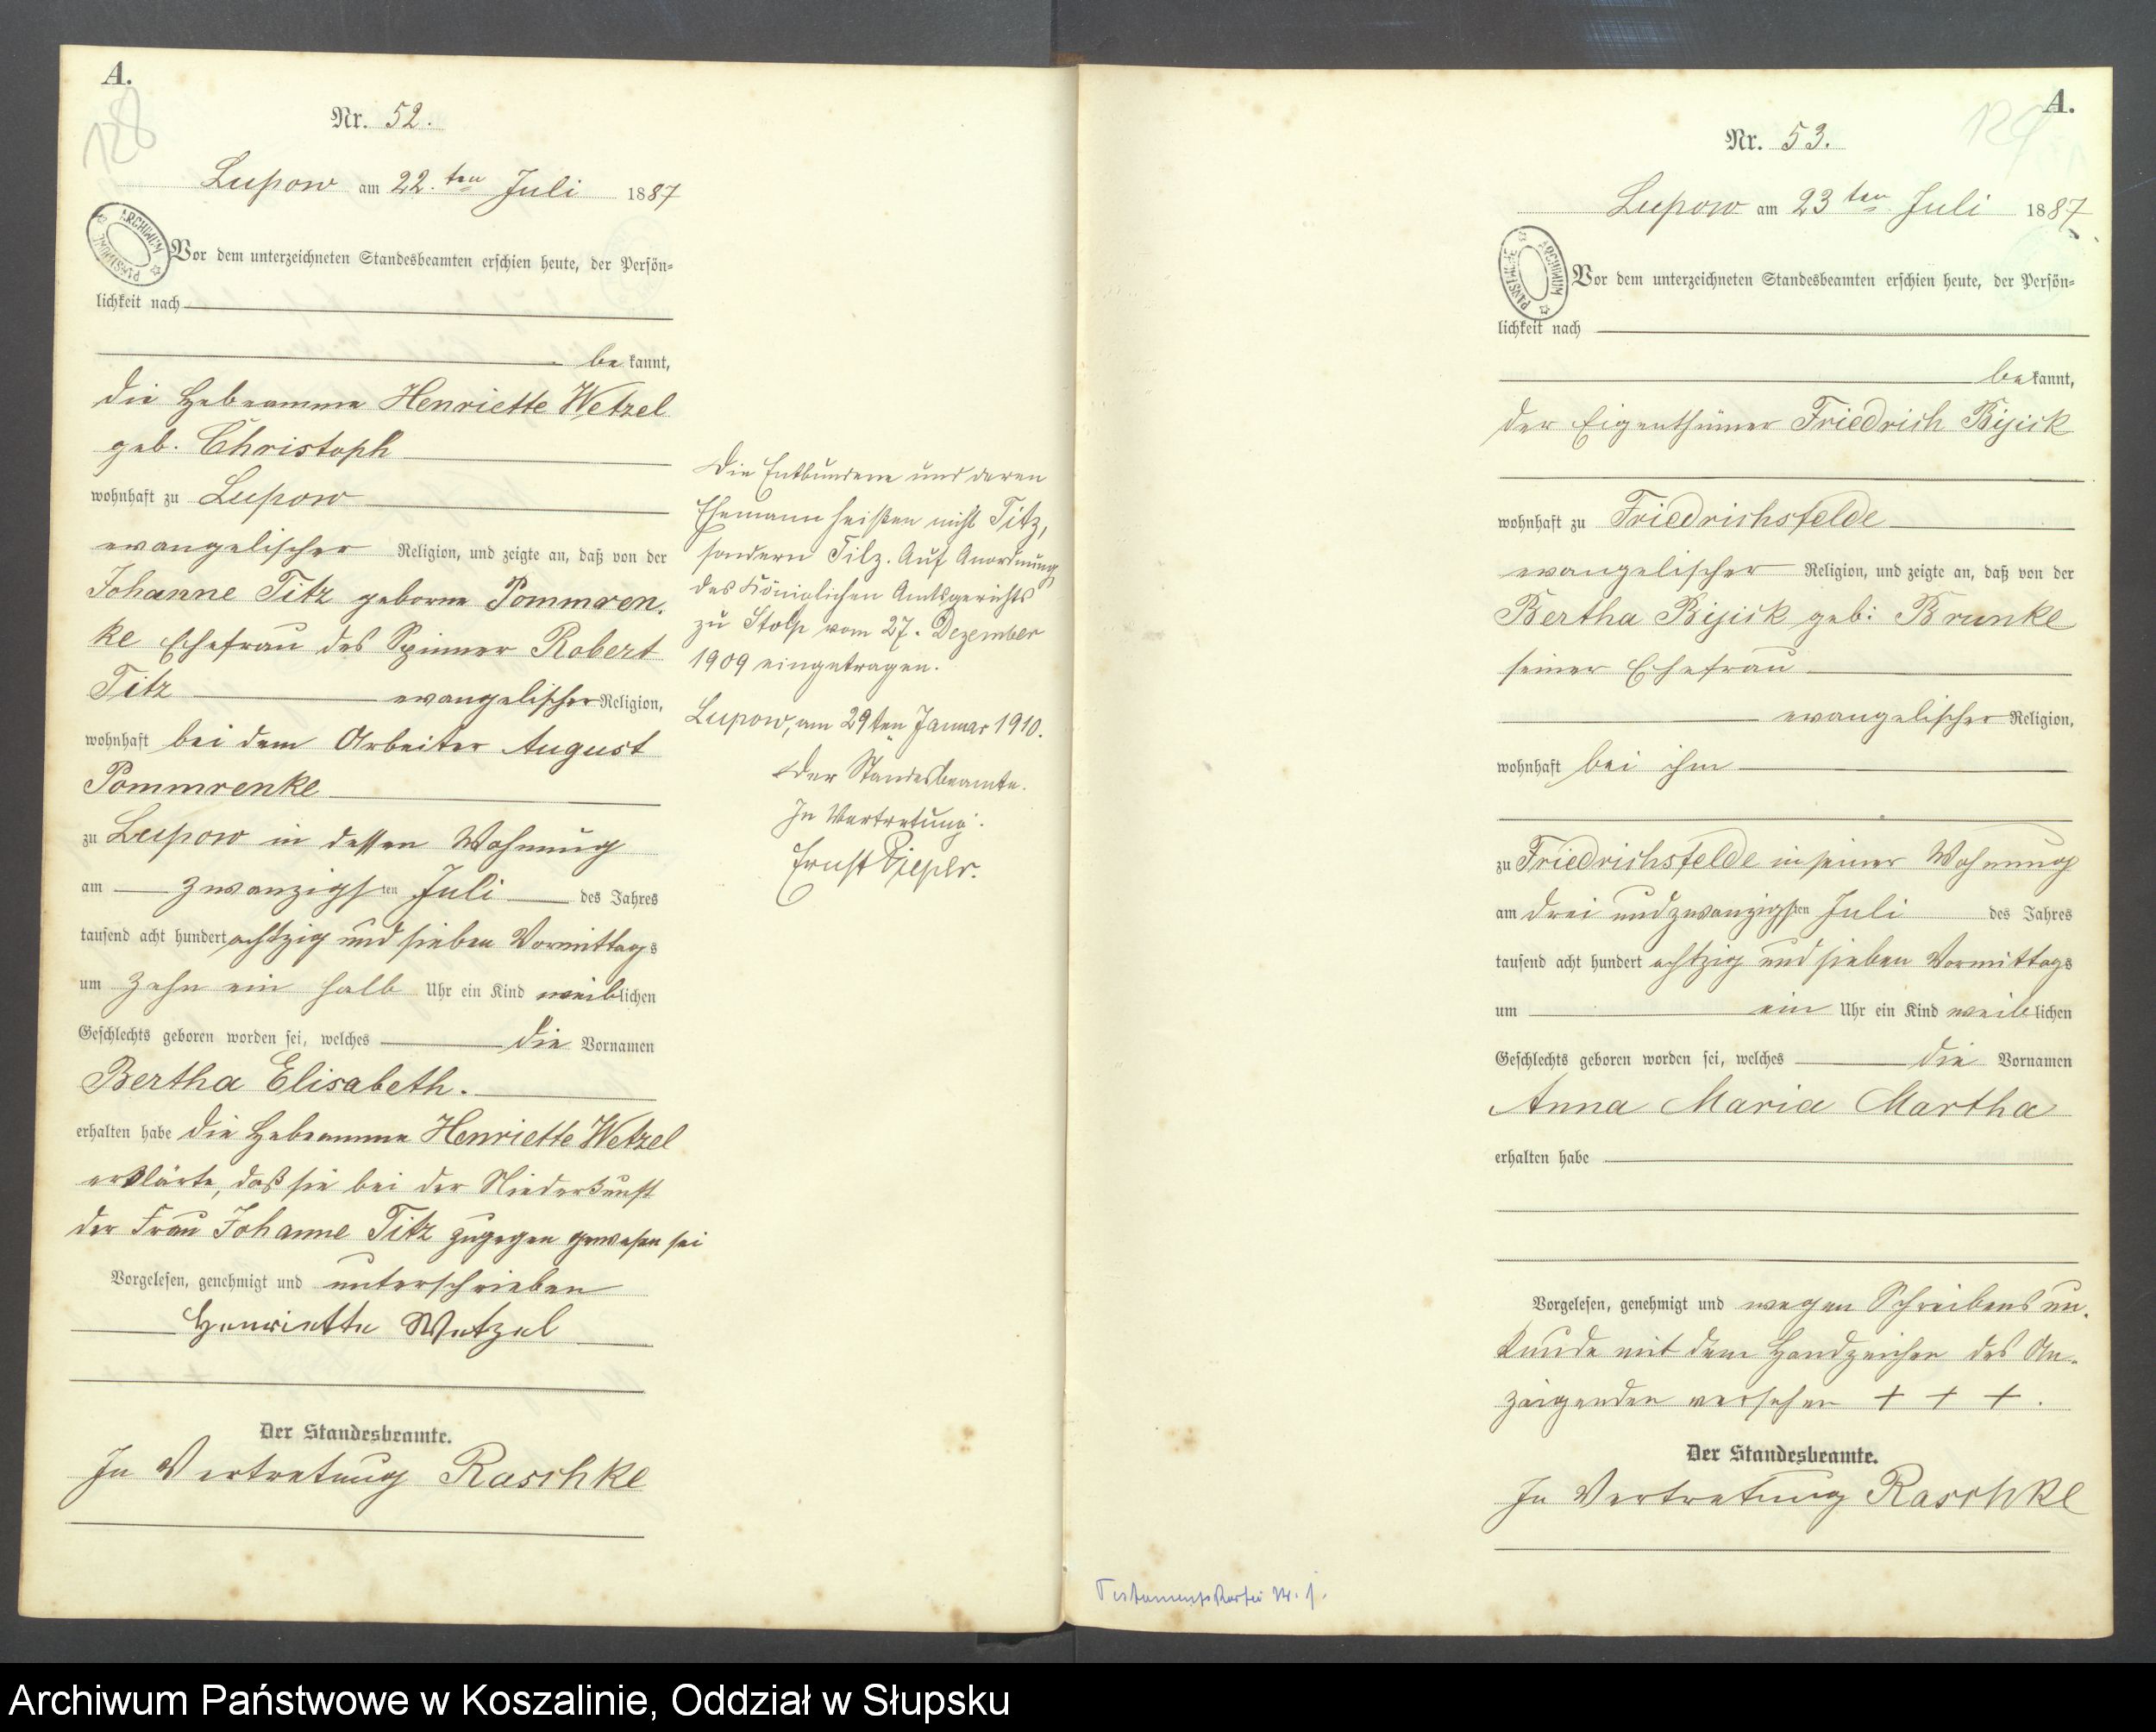 A.
128
Nr. 52.
Lupow am 22.ten Juli 1887
ARCHIWUM PAŃSTWOWE
Vor dem unterzeichneten Standesbeamten erschien heute, der Persön=
lichkeit nach
be kannt,
die Hebeamme Henriette Wetzel
geb. Christoph
wohnhaft zu Lupow
evangelischer Religion, und zeigte an, daß von der
Johanne Titz geborne Pommren-
ke Ehefrau des Spinner Robert
Titz evangelischer Religion,
wohnhaft bei dem Arbeiter August
Pommrenke
zu Lupow in dessen Wohnung
am zwanzigsten Juli des Jahres
tausend acht hundert achtzig und sieben Vormittags
um zehn ein halb Uhr ein Kind weiblichen
Geschlechts geboren worden sei, welches die Vornamen
Bertha Elisabeth.
erhalten habe die Hebeamme Henriette Wetzel
erklärte, daß sie bei der Niederkunft
der Frau Johanne Titz zugegen gewesen sei
Vorgelesen, genehmigt und unterschrieben
Henriette Wetzel
Der Standesbeamte.
In Vertretung Raschke
Die Entbundene und deren
Ehemann heißen nicht Titz,
sondern Tilz. Auf Anordnung
des Königlichen Amtsgerichts
zu Stolp vom 27. Dezember
1909 eingetragen.
Lupow, am 29ten Januar 1910.
Der Standesbeamte.
In Vertretung.
Ernst Piepér.
A.
129
Nr. 53.
Lupow am 23ten Juli 1887
ARCHIWUM PAŃSTWOWE
Vor dem unterzeichneten Standesbeamten erschien heute, der Persön=
lichkeit nach
bekannt,
der Eigenthümer Friedrich Bijick
wohnhaft zu Friedrichsfelde
evangelischer Religion, und zeigte an, daß von der
Bertha Bijick geb: Brunke
seiner Ehefrau
evangelischer Religion,
wohnhaft bei ihm
zu Friedrichsfelde in seiner Wohnung
am drei und zwanzigsten Juli des Jahres
tausend acht hundert achtzig und sieben Vormittags
um ein Uhr ein Kind weiblichen
Geschlechts geboren worden sei, welches die Vornamen
Anna Maria Martha
erhalten habe
Vorgelesen, genehmigt und wegen Schreibensun-
kunde mit dem Handzeichen des An-
zeigenden versehen + + + .
Der Standesbeamte.
In Vertretung Raschke
Testamentskartei Nr. 1.
Archiwum Państwowe w Koszalinie, Oddział w Słupsku